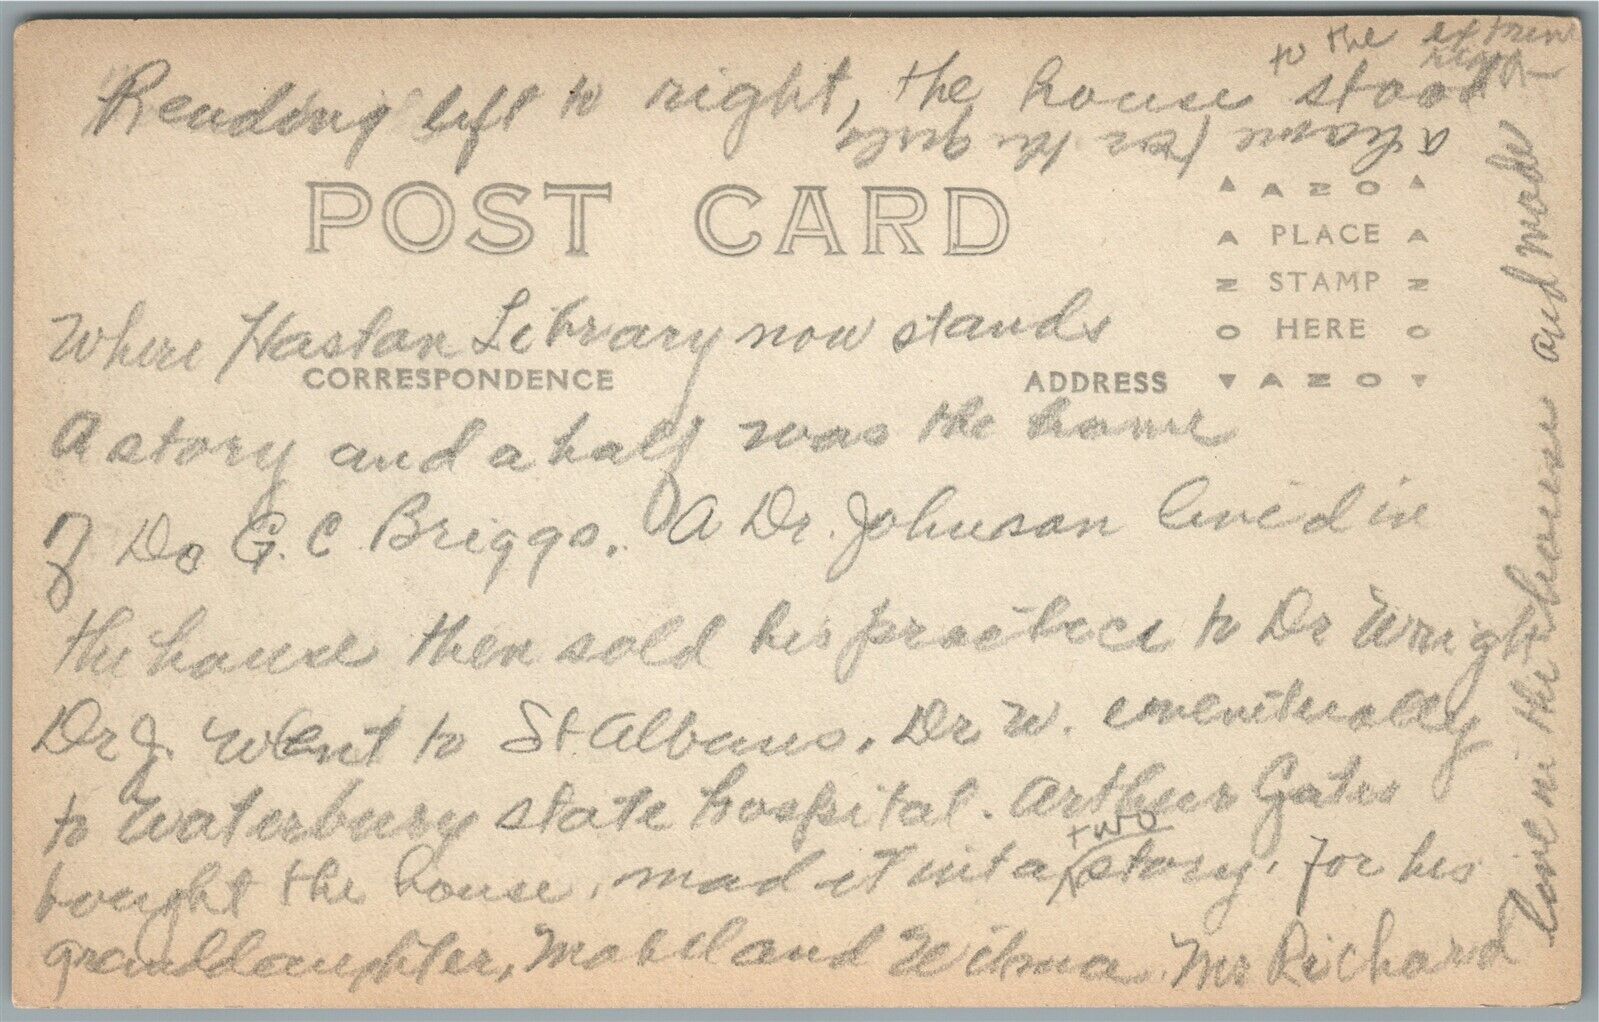 Reading left to right, the house stood
to the extreme
right
POST CARD
AZO
PLACE
STAMP
HERE
AZO
Where Hastan Library now stands
CORRESPONDENCE
ADDRESS
A story and a half was the home
of Dr G. C. Briggs. A Dr. Johnson lived in
the house then sold his practice to Dr Wright
Dr J. went to St Albans. Dr W. eventually
to Waterbury state hospital. Arthur Gates
bought the house, mad it into a two story. For his
granddaughter, Mabel and Wilma. Mr Richard
live in the house and made
a home for the girls